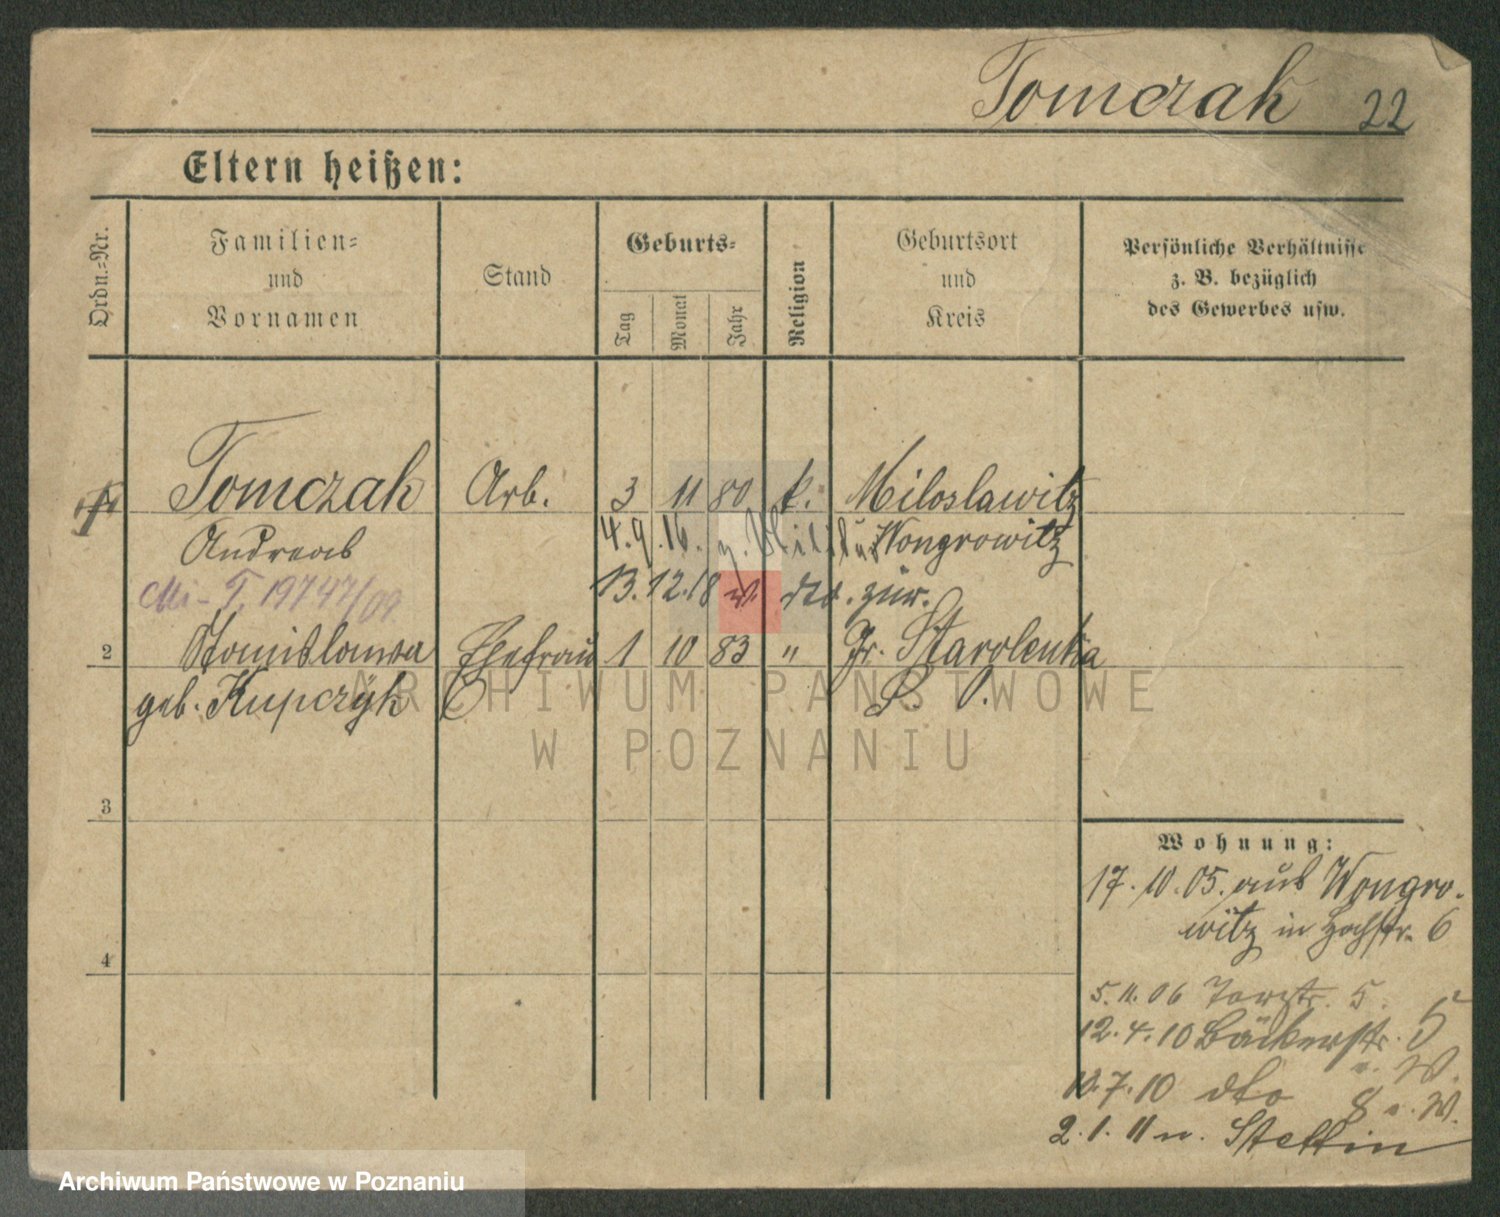 Tomczak 22
Eltern heißen:
Ordn.-Nr.
Familien-
und
Vornamen
Stand
Geburts-
Tag
Monat
Jahr
Religion
Geburtsort
und
Kreis
Persönliche Verhältnisse
z. B. bezüglich
des Gewerbes usw.
Tomczak Arb. 3 11 80 k. Miloslawitz
Andreas 4.9.16. z. Wongrowitz
Mi- T. 19747/09
13.12.18 v. dto. zur.
2 Stanislawa Ehefrau 1 10 83 " Gr. Starolenka
geb. Kupczyk P. O.
3
4
Wohnung:
17.10.05. aus Wongro-
witz in Hochstr. 6
5.11.06 Torstr. 5.
12.4.10 Bäckerstr. 5
v. W.
10.7.10 dto 8 v. W.
2.1.11 n. Stettin
ARCHIWUM PAŃSTWOWE
W POZNANIU
Archiwum Państwowe w Poznaniu